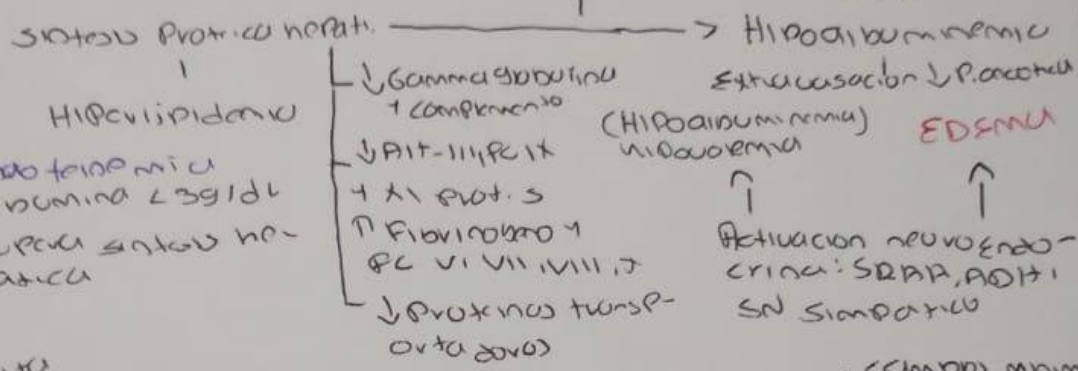 sintesis Proteica hepati. → Hipoalbuminemia
Hiperlipidemia
oteinemia
bumina < 3g/dL
pera sintesis he-
atica
↓ Gammaglobulina
+ complemento
↓ AIT-III, FC IX
+ XI prot. S
↑ Fibrinogeno y
FC V, VII, VIII,
↓ Proteinas transp-
ortadoras
Extravasación ↓ P. oncotica
(Hipoalbuminemia)
hipovolemia
EDEMA
↑ ↑
Activacion neuroendo-
crina: SRAA, ADH,
SN Simpatico